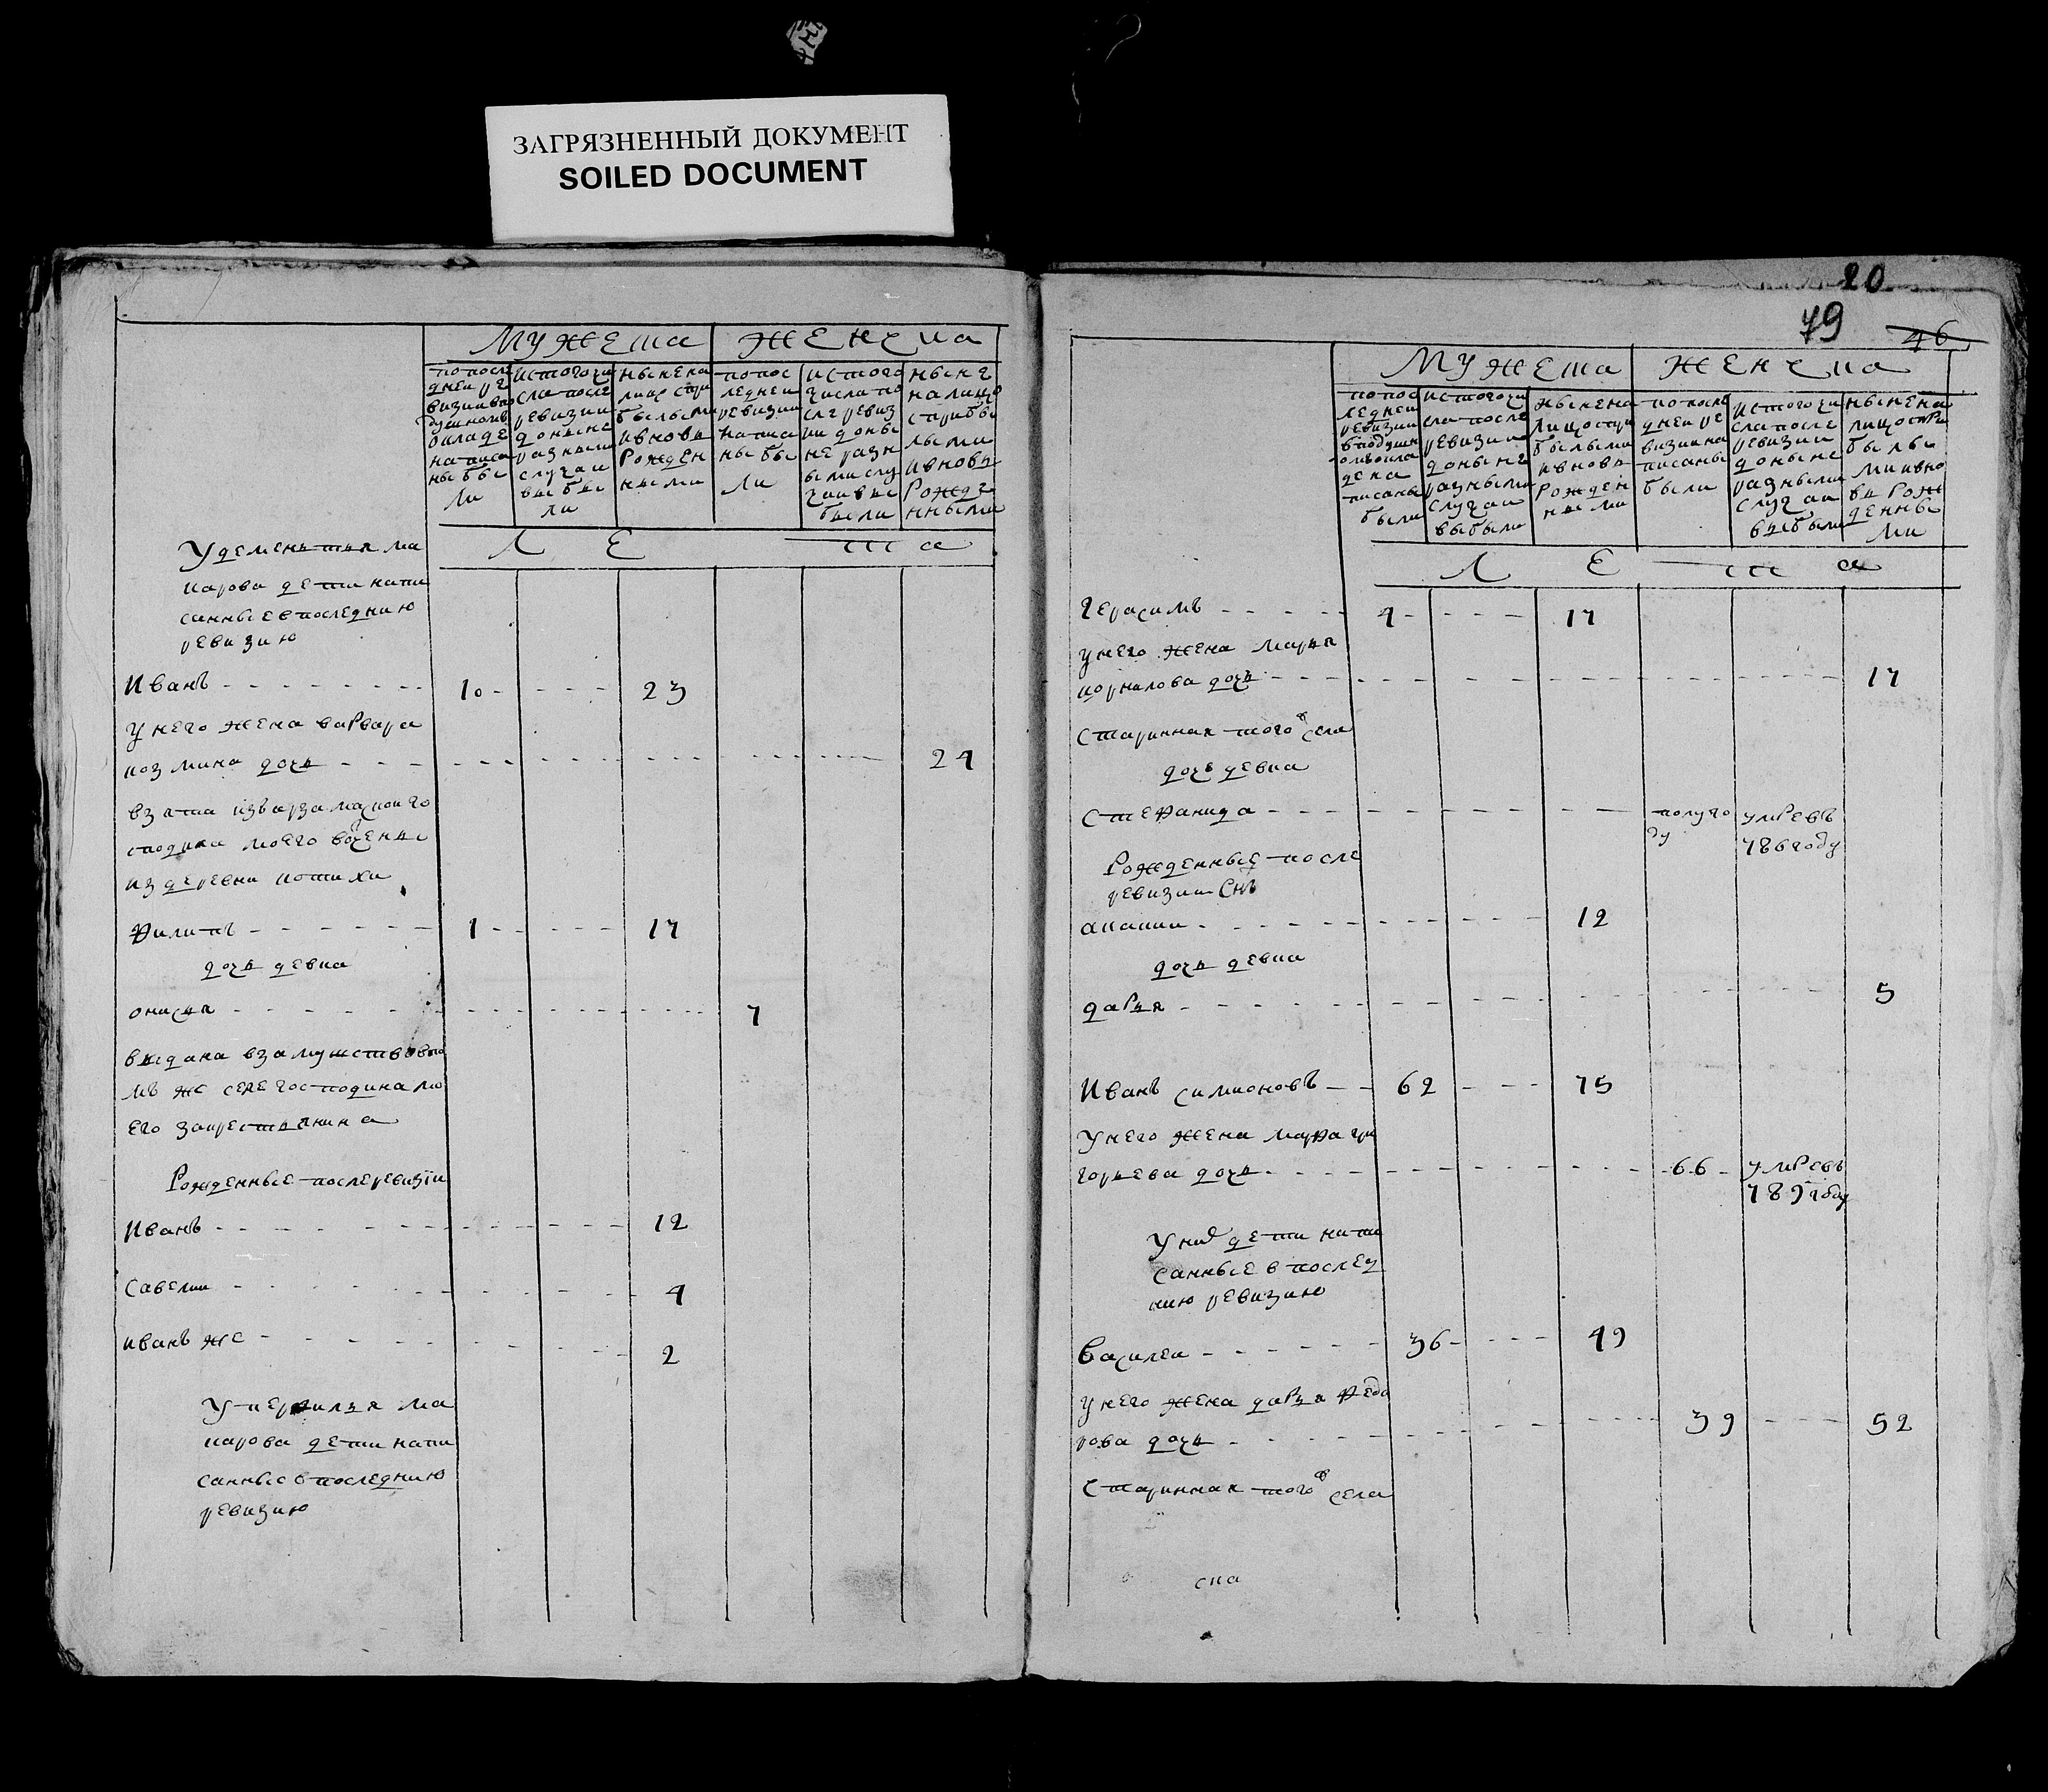 ЗАГРЯЗНЕННЫЙ ДОКУМЕНТ
SOILED DOCUMENT
мужеска женска
по после дней ре визии в по душномъ окладе написа ны бы ли
ис того чи сла после ревизии до ныне разными случаи вы бы ли
ныне на лицо с при былыми и вновь рожден ными
по пос ледней ревизии написа ны бы ли
ис того числа по сле ревиз ии до ны не разн ыми слу чаи вы были
ныне на лицо с прибы лыми и вновь рожде нными
ле та
У дементья ма
карова дети напи
санные в последнию
ревизию
Иванъ 10 23
у него жена варвара
козмина дочь 24
взята из
сподина моего вочены
из деревни потихи
Филипъ 1 17
дочь девка
онисья 7
выдана в замужство в то
мъ же селе господина мо
его за крестьянина
Рожденные после ревизии
Иванъ 12
Савелии 4
иванъ же 2
У ма
карова дети напи
санные в последнию
ревизию
20
79
46
мужеска женска
по пос ледней ревизии в подушн омъ окла де на писаны были
ис того чи сла после ревизии до ныне разными случаи выбыли
ныне на лицо с при былыми и вновь рожден ными
по после дней ре визии на писаны были
ис того чи сла после ревизии до ныне разными случаи выбыли
ныне на лицо с при былы ми и вно вь рож денны ми
ле та
Герасимъ 4 17
у него жена марья
корнилова дочь 17
старинная того ж села
дочь девка
стефанида полуго ду умре въ 786 году
Рожденные после
ревизии снъ
анании 12
дочь девка
дарья 5
Иванъ симионовъ 62 75
У него жена марфа гри
горьева дочь 66 умре въ 789 году
У них дети напи
санные в послед
нию ревизию
Василеи 36 49
у него жена дарья федо
рова дочь 39 52
старинная того ж села
ска